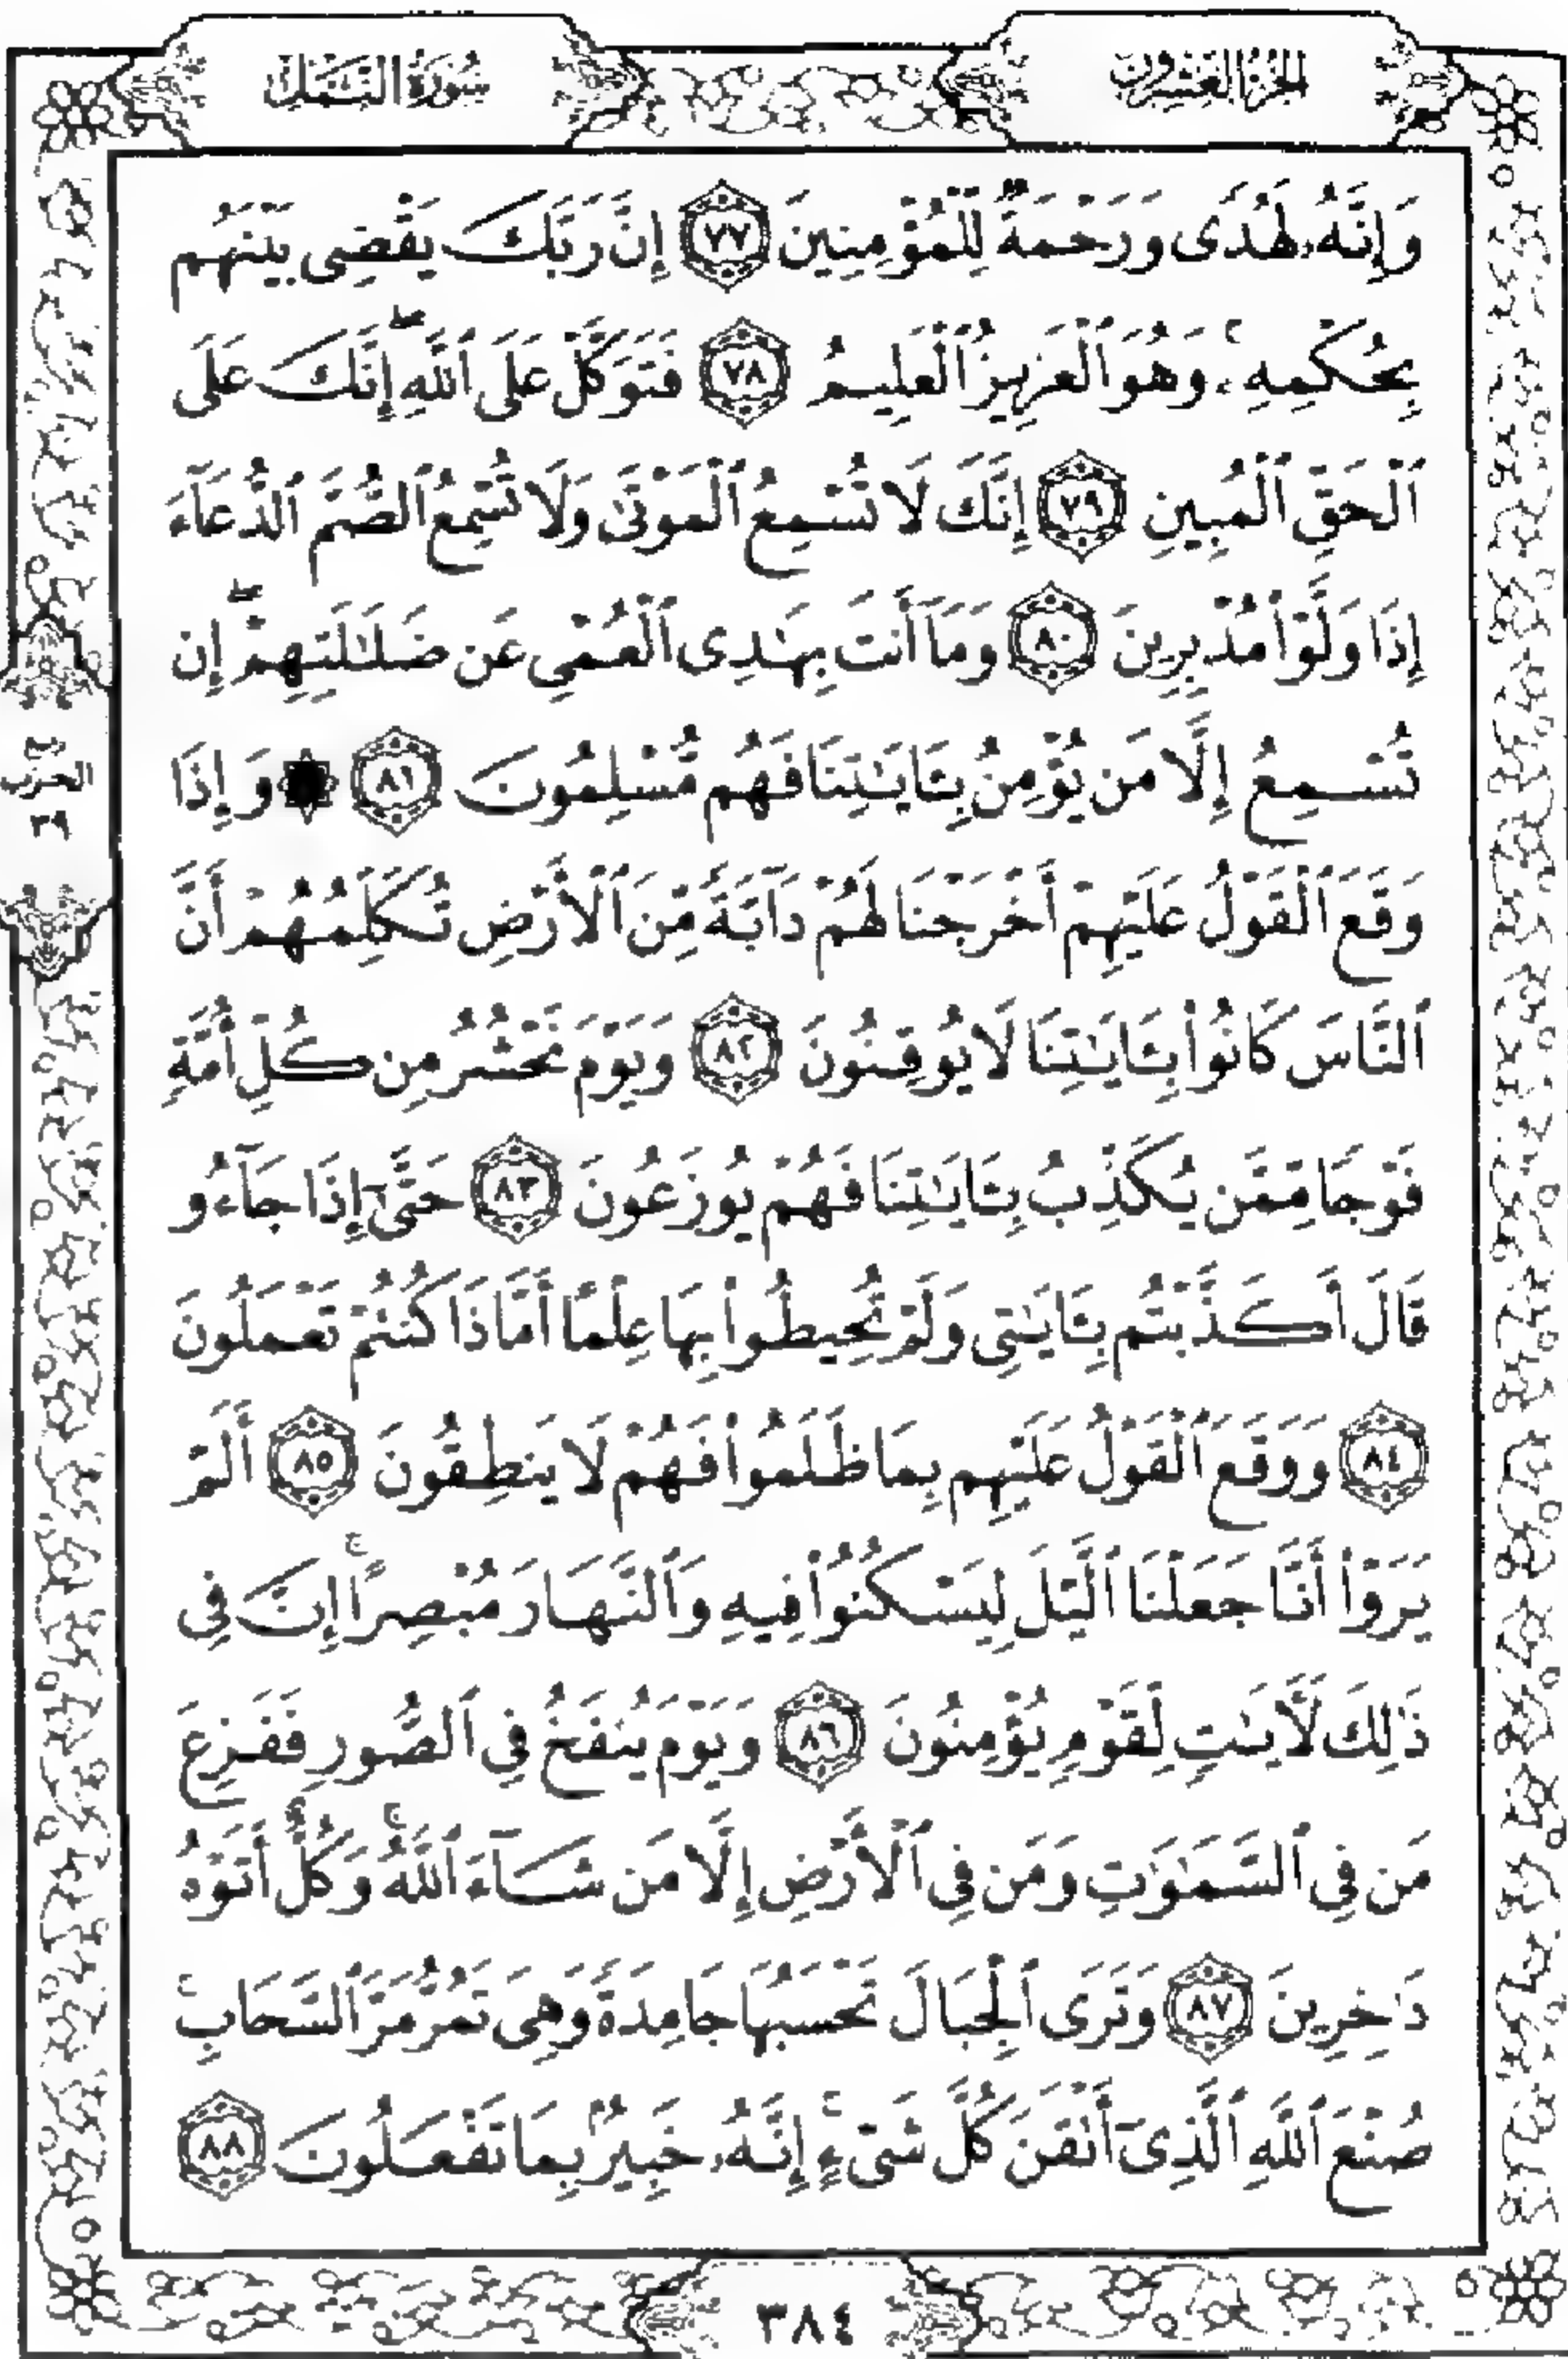 الجزء العشرون
سورة النمل
وَإِنَّهُۥ لَهُدًى وَرَحْمَةٌ لِّلْمُؤْمِنِينَ ٧٧ إِنَّ رَبَّكَ يَقْضِى بَيْنَهُم
بِحُكْمِهِۦ ۚ وَهُوَ ٱلْعَزِيزُ ٱلْعَلِيمُ ٧٨ فَتَوَكَّلْ عَلَى ٱللَّهِ ۖ إِنَّكَ عَلَى
ٱلْحَقِّ ٱلْمُبِينِ ٧٩ إِنَّكَ لَا تُسْمِعُ ٱلْمَوْتَىٰ وَلَا تُسْمِعُ ٱلصُّمَّ ٱلدُّعَآءَ
إِذَا وَلَّوْا۟ مُدْبِرِينَ ٨٠ وَمَآ أَنتَ بِهَـٰدِى ٱلْعُمْىِ عَن ضَلَـٰلَتِهِمْ ۖ إِن
تُسْمِعُ إِلَّا مَن يُؤْمِنُ بِـَٔايَـٰتِنَا فَهُم مُّسْلِمُونَ ٨١ ۞ وَإِذَا
وَقَعَ ٱلْقَوْلُ عَلَيْهِمْ أَخْرَجْنَا لَهُمْ دَآبَّةً مِّنَ ٱلْأَرْضِ تُكَلِّمُهُمْ أَنَّ
ٱلنَّاسَ كَانُوا۟ بِـَٔايَـٰتِنَا لَا يُوقِنُونَ ٨٢ وَيَوْمَ نَحْشُرُ مِن كُلِّ أُمَّةٍ
فَوْجًا مِّمَّن يُكَذِّبُ بِـَٔايَـٰتِنَا فَهُمْ يُوزَعُونَ ٨٣ حَتَّىٰٓ إِذَا جَآءُو
قَالَ أَكَذَّبْتُم بِـَٔايَـٰتِى وَلَمْ تُحِيطُوا۟ بِهَا عِلْمًا أَمَّاذَا كُنتُمْ تَعْمَلُونَ
٨٤ وَوَقَعَ ٱلْقَوْلُ عَلَيْهِم بِمَا ظَلَمُوا۟ فَهُمْ لَا يَنطِقُونَ ٨٥ أَلَمْ
يَرَوْا۟ أَنَّا جَعَلْنَا ٱلَّيْلَ لِيَسْكُنُوا۟ فِيهِ وَٱلنَّهَارَ مُبْصِرًا ۚ إِنَّ فِى
ذَٰلِكَ لَـَٔايَـٰتٍ لِّقَوْمٍ يُؤْمِنُونَ ٨٦ وَيَوْمَ يُنفَخُ فِى ٱلصُّورِ فَفَزِعَ
مَن فِى ٱلسَّمَـٰوَٰتِ وَمَن فِى ٱلْأَرْضِ إِلَّا مَن شَآءَ ٱللَّهُ ۚ وَكُلٌّ أَتَوْهُ
دَٰخِرِينَ ٨٧ وَتَرَى ٱلْجِبَالَ تَحْسَبُهَا جَامِدَةً وَهِىَ تَمُرُّ مَرَّ ٱلسَّحَابِ ۚ
صُنْعَ ٱللَّهِ ٱلَّذِىٓ أَتْقَنَ كُلَّ شَىْءٍ ۚ إِنَّهُۥ خَبِيرٌۢ بِمَا تَفْعَلُونَ ٨٨
٣٨٤